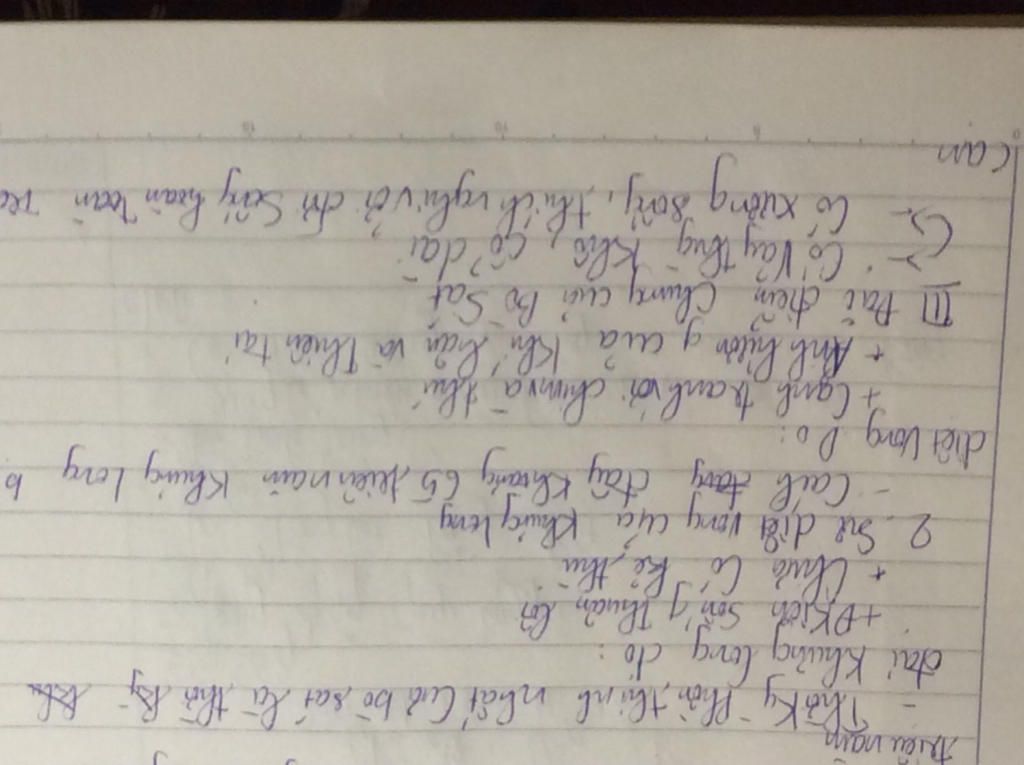 triệu năm
- Thời Kỳ Phồn thịnh nhất của bò sát là thời kỳ
đại khủng long do:
+ ĐKiện sống thuận lợi
+ Chưa có kẻ thù
2. Sự diệt vong của khủng long
- Cách đây khoảng 65 triệu năm khủng long b
diệt vong Do:
+ Cạnh tranh với chim và thú
+ Ảnh hưởng của khí hậu và thiên tai
III Đặc điểm chung của Bò Sát
- Có vảy khô, Cổ dài
- Có xương sống, thích nghi với đời sống hoàn toàn
cạn